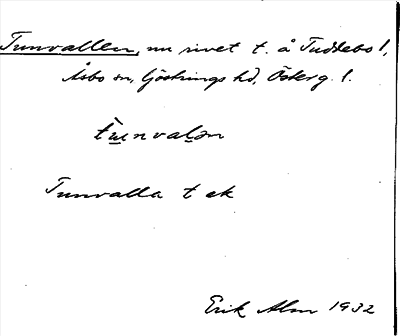 Tunvallen, nu rivet t. å Tuddebo 1,
Åsbo sn, Göstrings hd, Österg. l.
Tunvalla t ek
Erik Alm 1932